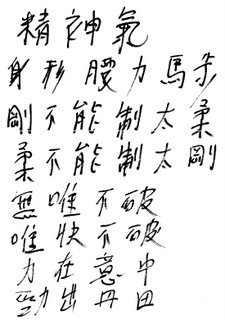 精神氣
身形腰力馬步
剛不能制太柔
柔不能制太剛
無唯不破
唯快不破
力在意中
勁出丹田